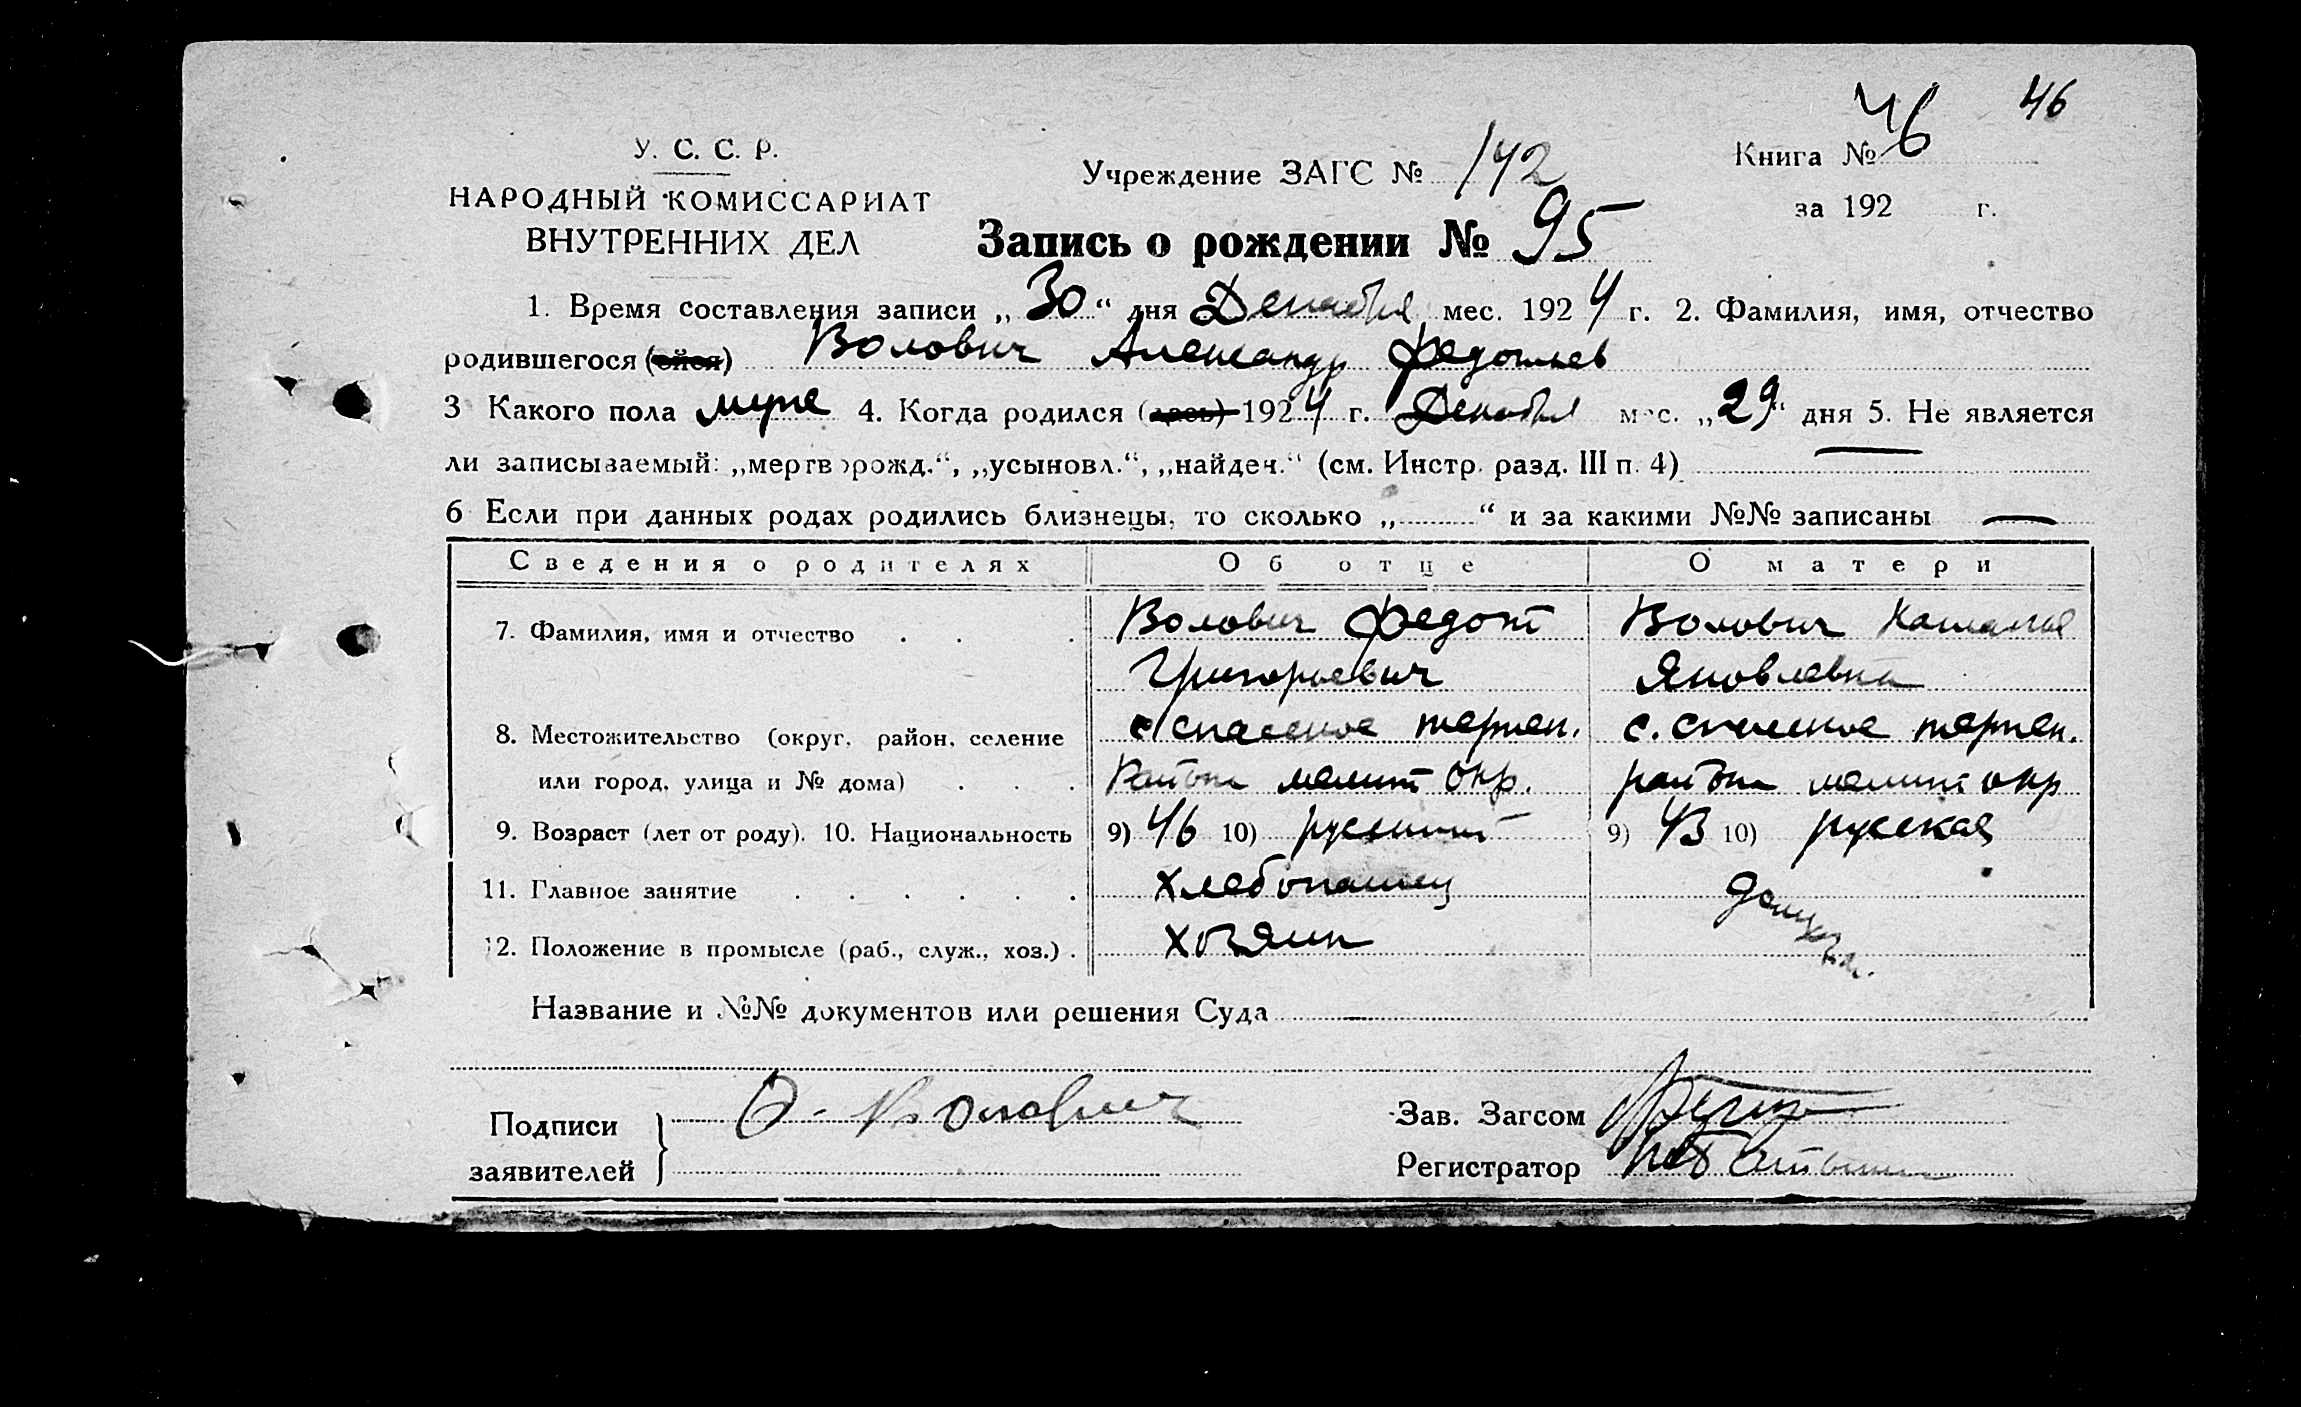 46
У. С. С. Р.
НАРОДНЫЙ КОМИССАРИАТ
ВНУТРЕННИХ ДЕЛ
Учреждение ЗАГС № 142
Книга № 46
за 192 г.
Запись о рождении № 95
1. Время составления записи „ 30 “ дня Декабря мес. 1924 г. 2. Фамилия, имя, отчество
родившегося (ейся) Волович Александр Федотьев
3 Какого пола муже 4. Когда родился (лась) 1924 г. Декабря мес. „ 29 “ дня 5. Не является
ли записываемый: „мертворожд.“, „усыновл.“, „найден.“ (см. Инстр. разд. III п. 4) —
6 Если при данных родах родились близнецы, то сколько „ “ и за какими №№ записаны —
Сведения о родителях Об отце О матери
7. Фамилия, имя и отчество Волович Федот Волович
Григорьевич Яковлевна
8. Местожительство (округ, район, селение с. спасское терпен. с. спасское терпен.
или город, улица и № дома) район мелит окр. район мелит окр
9. Возраст (лет от роду). 10. Национальность 9) 46 10) русский 9) 43 10) русская
11. Главное занятие хлебопашец
12. Положение в промысле (раб., служ., хоз.) хозяин
Название и №№ документов или решения Суда —
Подписи
заявителей
Волович
Зав. Загсом
Регистратор